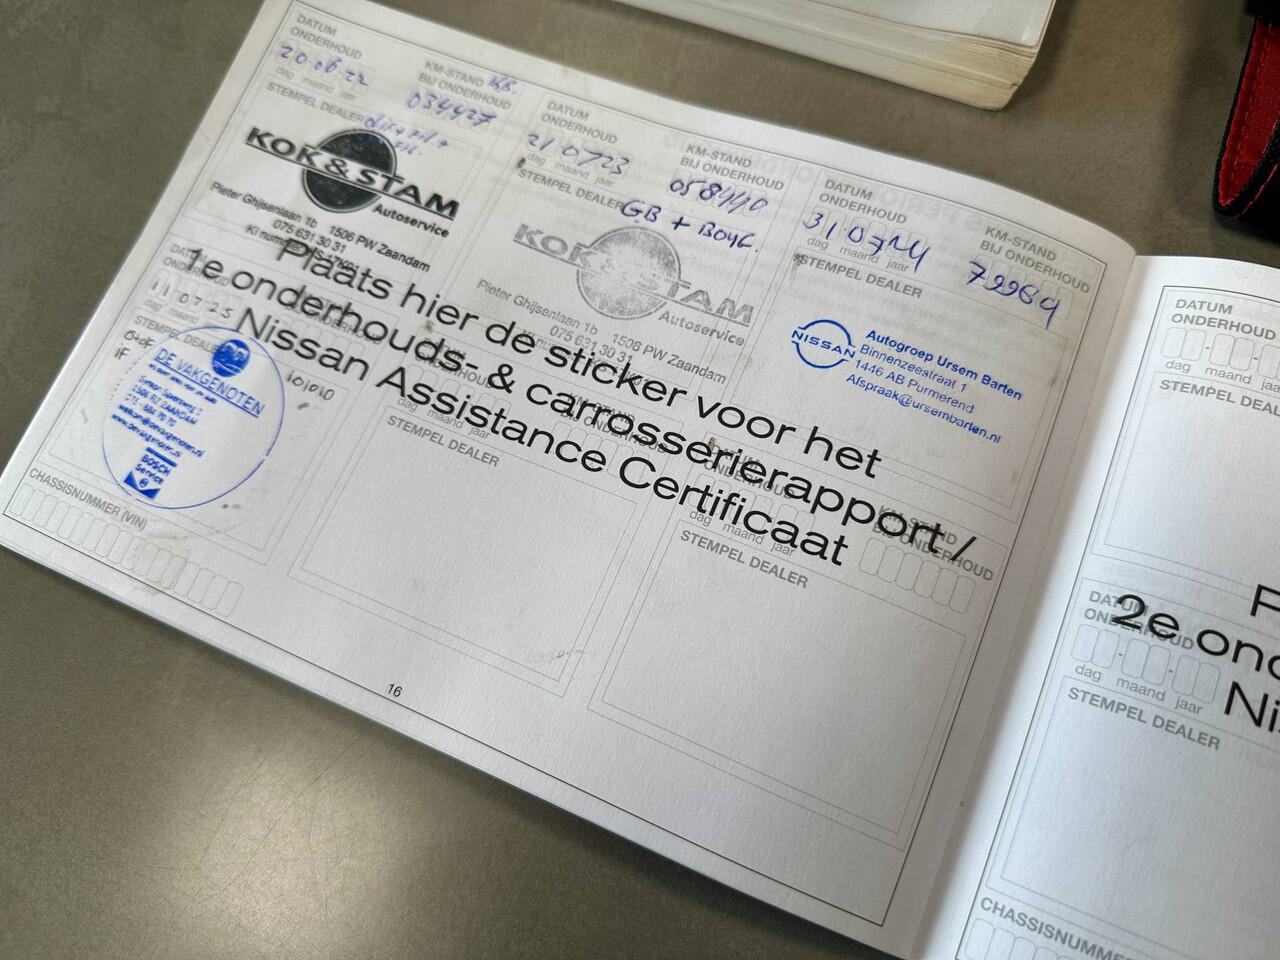 DATUM
ONDERHOUD
20 06 22
dag maand jaar
KM-STAND
BIJ ONDERHOUD
034427
STEMPEL DEALER
KOK & STAM
Autoservice
Pieter Ghijsenlaan 1b 1506 PW Zaandam
075 631 30 31
DATUM
ONDERHOUD
21 07 23
dag maand jaar
KM-STAND
BIJ ONDERHOUD
058440
STEMPEL DEALER
GB +
KOK & STAM
Autoservice
Pieter Ghijsenlaan 1b 1506 PW Zaandam
075 631 30 31
DATUM
ONDERHOUD
31 07 24
dag maand jaar
KM-STAND
BIJ ONDERHOUD
72969
STEMPEL DEALER
NISSAN
Autogroep Ursem Barten
Binnenzeestraat 1
1446 AB Purmerend
Afspraak@ursembarten.nl
Plaats hier de sticker voor het
1e onderhouds- & carrosserierapport /
Nissan Assistance Certificaat
11 07 25
STEMPEL DEALER
101010
DE VAKGENOTEN
ZAANDAM
www.devakgenoten.nl
BOSCH
Service
CHASSISNUMMER (VIN)
dag maand jaar
STEMPEL DEALER
KM-STAND
BIJ ONDERHOUD
dag maand jaar
STEMPEL DEALER
16
DATUM
ONDERHOUD
dag maand jaar
STEMPEL DEALER
2e
DATUM
ONDERHOUD
dag maand jaar
STEMPEL DEALER